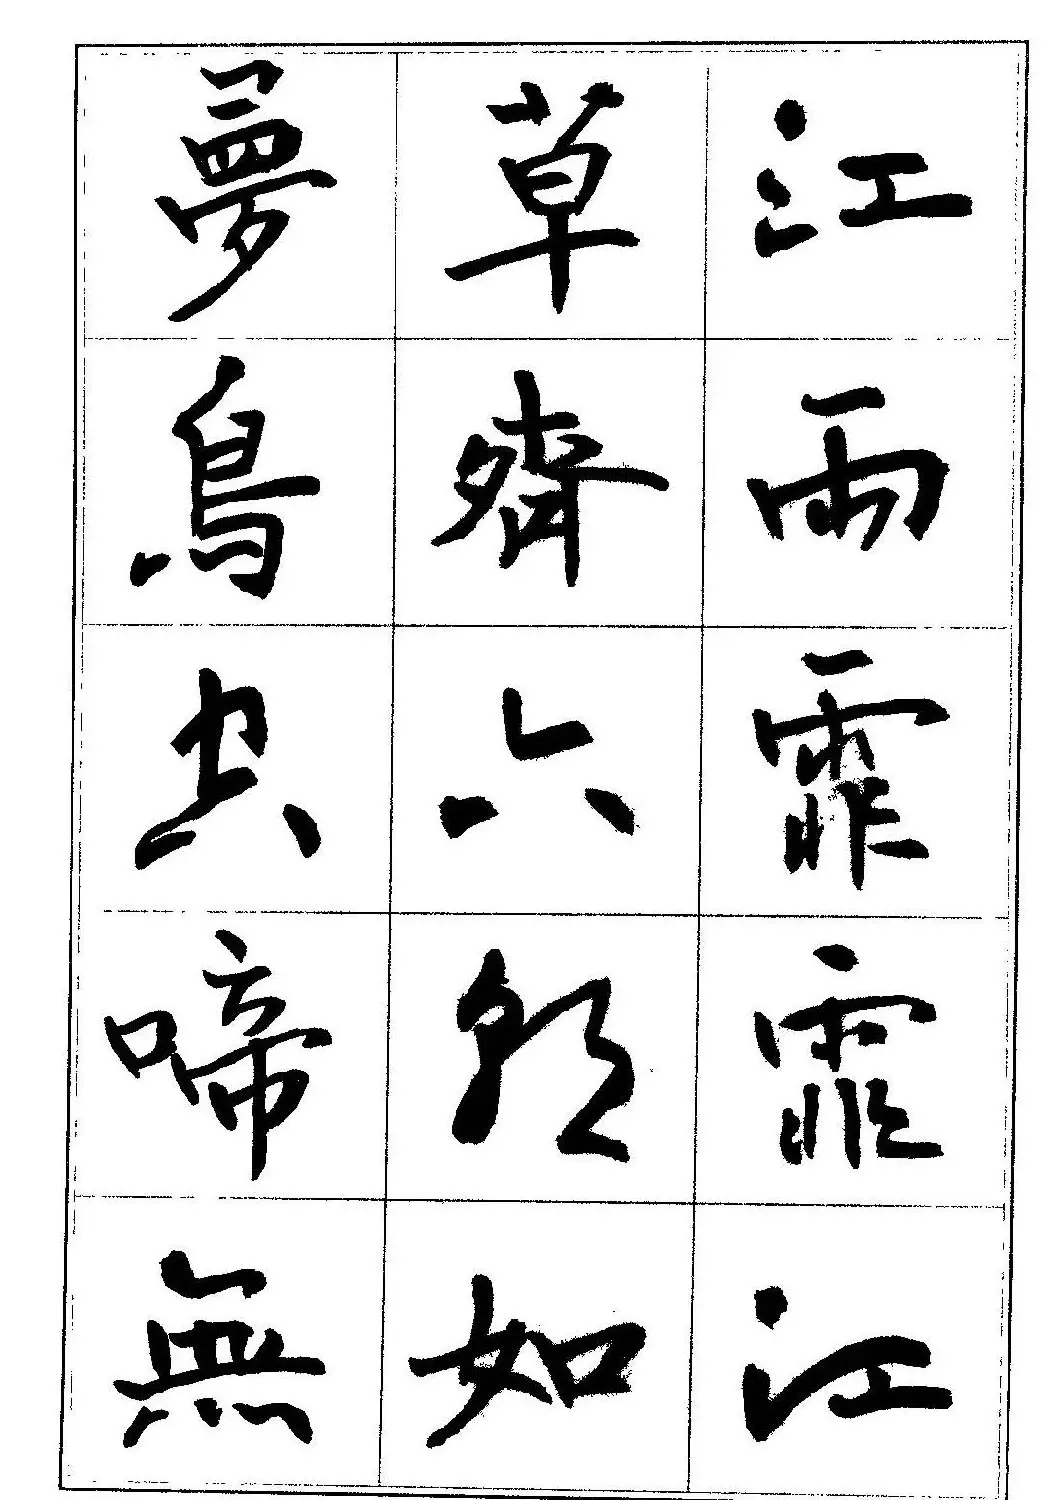 江雨霏霏江
草齊六朝如
夢鳥空啼無